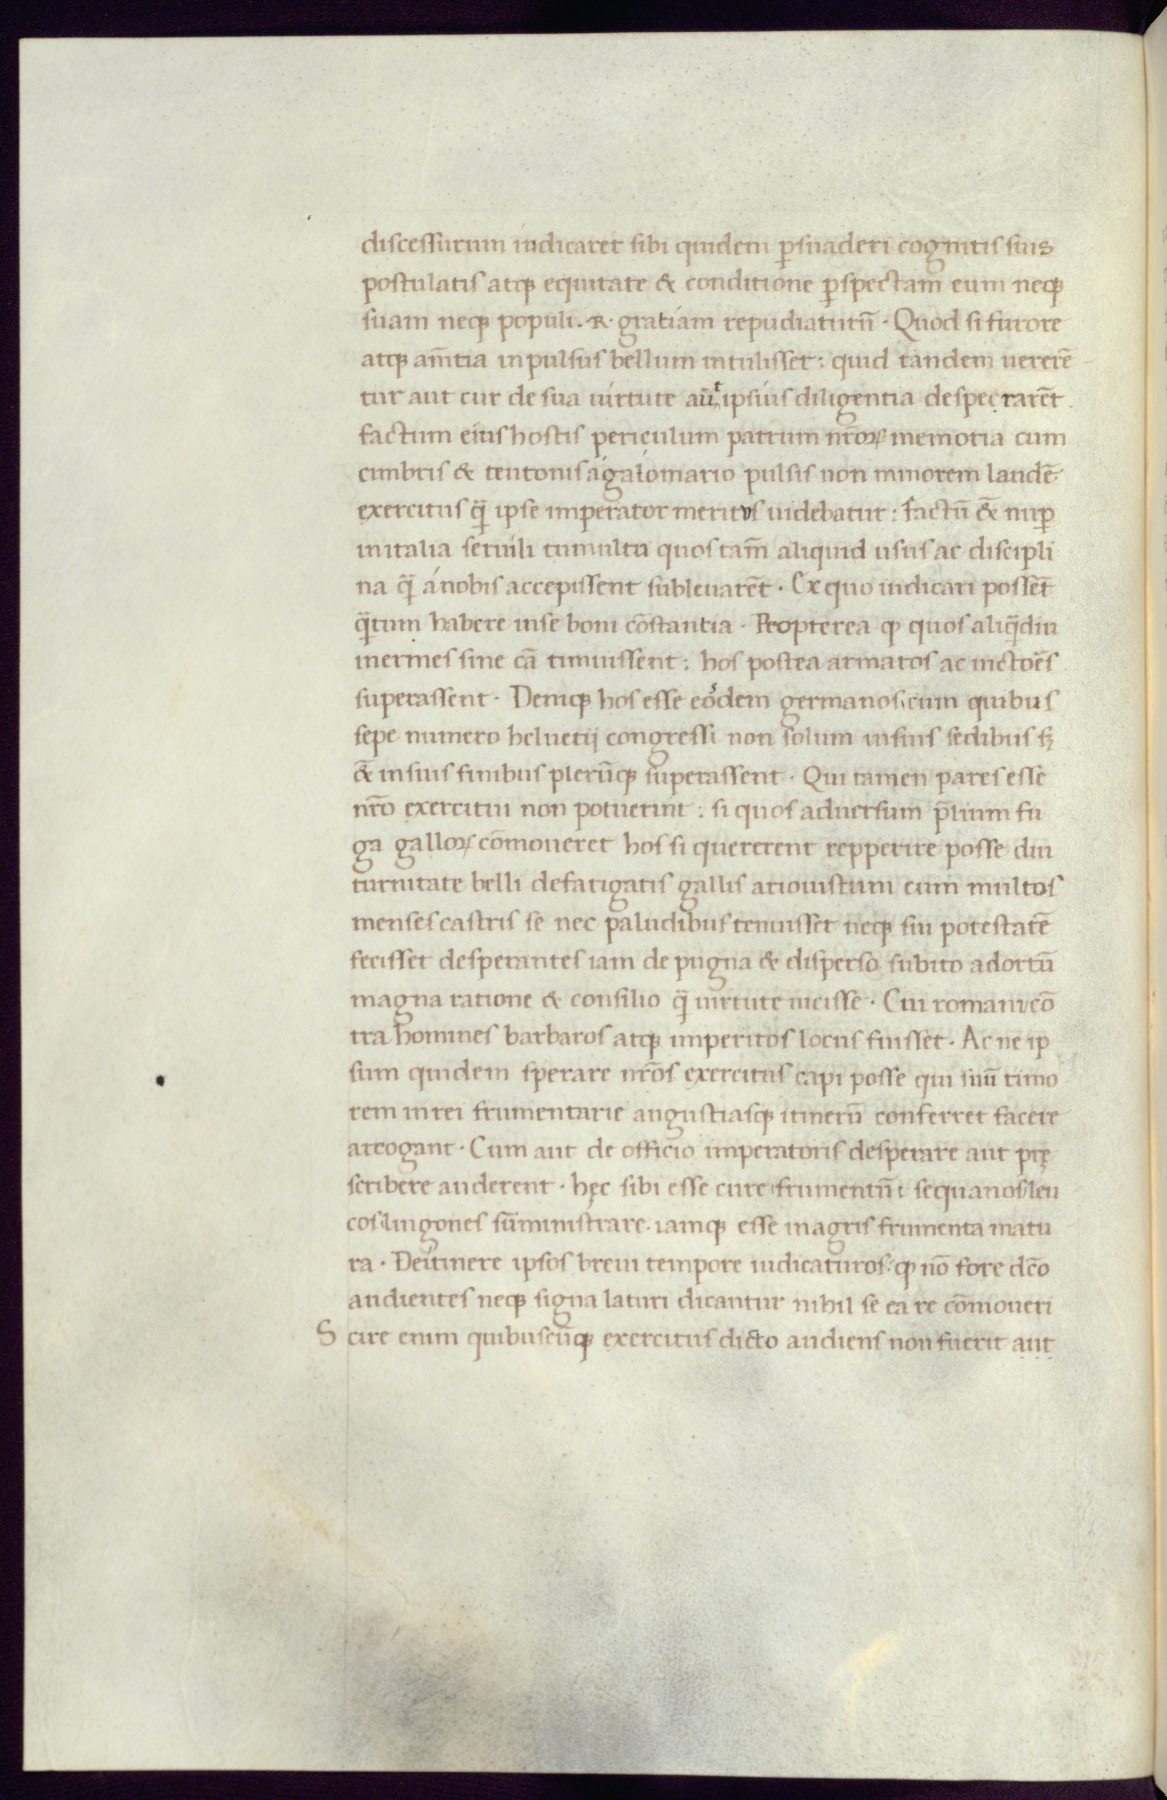 discessurum iudicaret sibi quidem ꝑsuaderi cognitis suis
postulatis atqꝫ equitate & conditione ꝑspectam eum neqꝫ
suam neqꝫ populi. R. gratiam repudiaturū · Quod si furore
atqꝫ am̄tia inpulsus bellum intulisset: quid tandem uererē
tur aut cur de sua uirtute aū ipsius diligentia despecrarēt
factum eius hostis periculum patrum nr̄oꝝ memoria cum
cimbris & teutonis a galomario pulsis non minorem laudē
exercitus qͣ̄ ipse imperator meritus uidebatur: factū &̄ nuꝑ
in italia seruili tumultu quos tam̄ aliquid usus ac discipli
na qͣ̄ a nobis accepissent subleuarēt · Ex quo iudicari possēt
qͣ̄tum habere in se boni cōstantia · Propterea ꝙ quos aliqͣ̄diu
inermes sine cā timuissent: hos postea armatos ac uictoēs
superassent · Deniqꝫ hos esse eodem germanos cum quibus
sepe numero heluetij congressi non solum in suis sedibus sꝫ
&̄ in suis finibus plerūqꝫ superassent · Qui tamen pares esse
nr̄o exercitui non potuerint: si quos aduersum p̄lium fu
ga galloꝝ cōmoueret hos si quererent repperire posse diu
turnitate belli defatigatis gallis ariouistum cum multos
menses castris se nec paludibus tenuisset neqꝫ sui potestatē
fecisset desperantes iam de pugna & disperso subito adortū
magna ratione & consilio qͣ̄ uirtute uicisse · Cui romani cō
tra homines barbaros atqꝫ imperitos locus fuisset · Ac ne ip
sum quidem sperare nr̄os exercitus capi posse qui suū timo
rem in rei frumentarie angustiasqꝫ itinerū conferret facere
arrogant · Cum aut de officio imperatoris desperare aut prę
scribere auderent · hęc sibi esse cure frumentū sequanos leu
cos lingones sūministrare. iamqꝫ esse in agris frumenta matu
ra · De itinere ipsos breui tempore iudicaturos: ꝙ nō fore dc̄o
audientes neqꝫ signa laturi dicantur nihil se ea re cōmoueri
S cire enim quibuscūqꝫ exercitus dicto audiens non fuerit aut